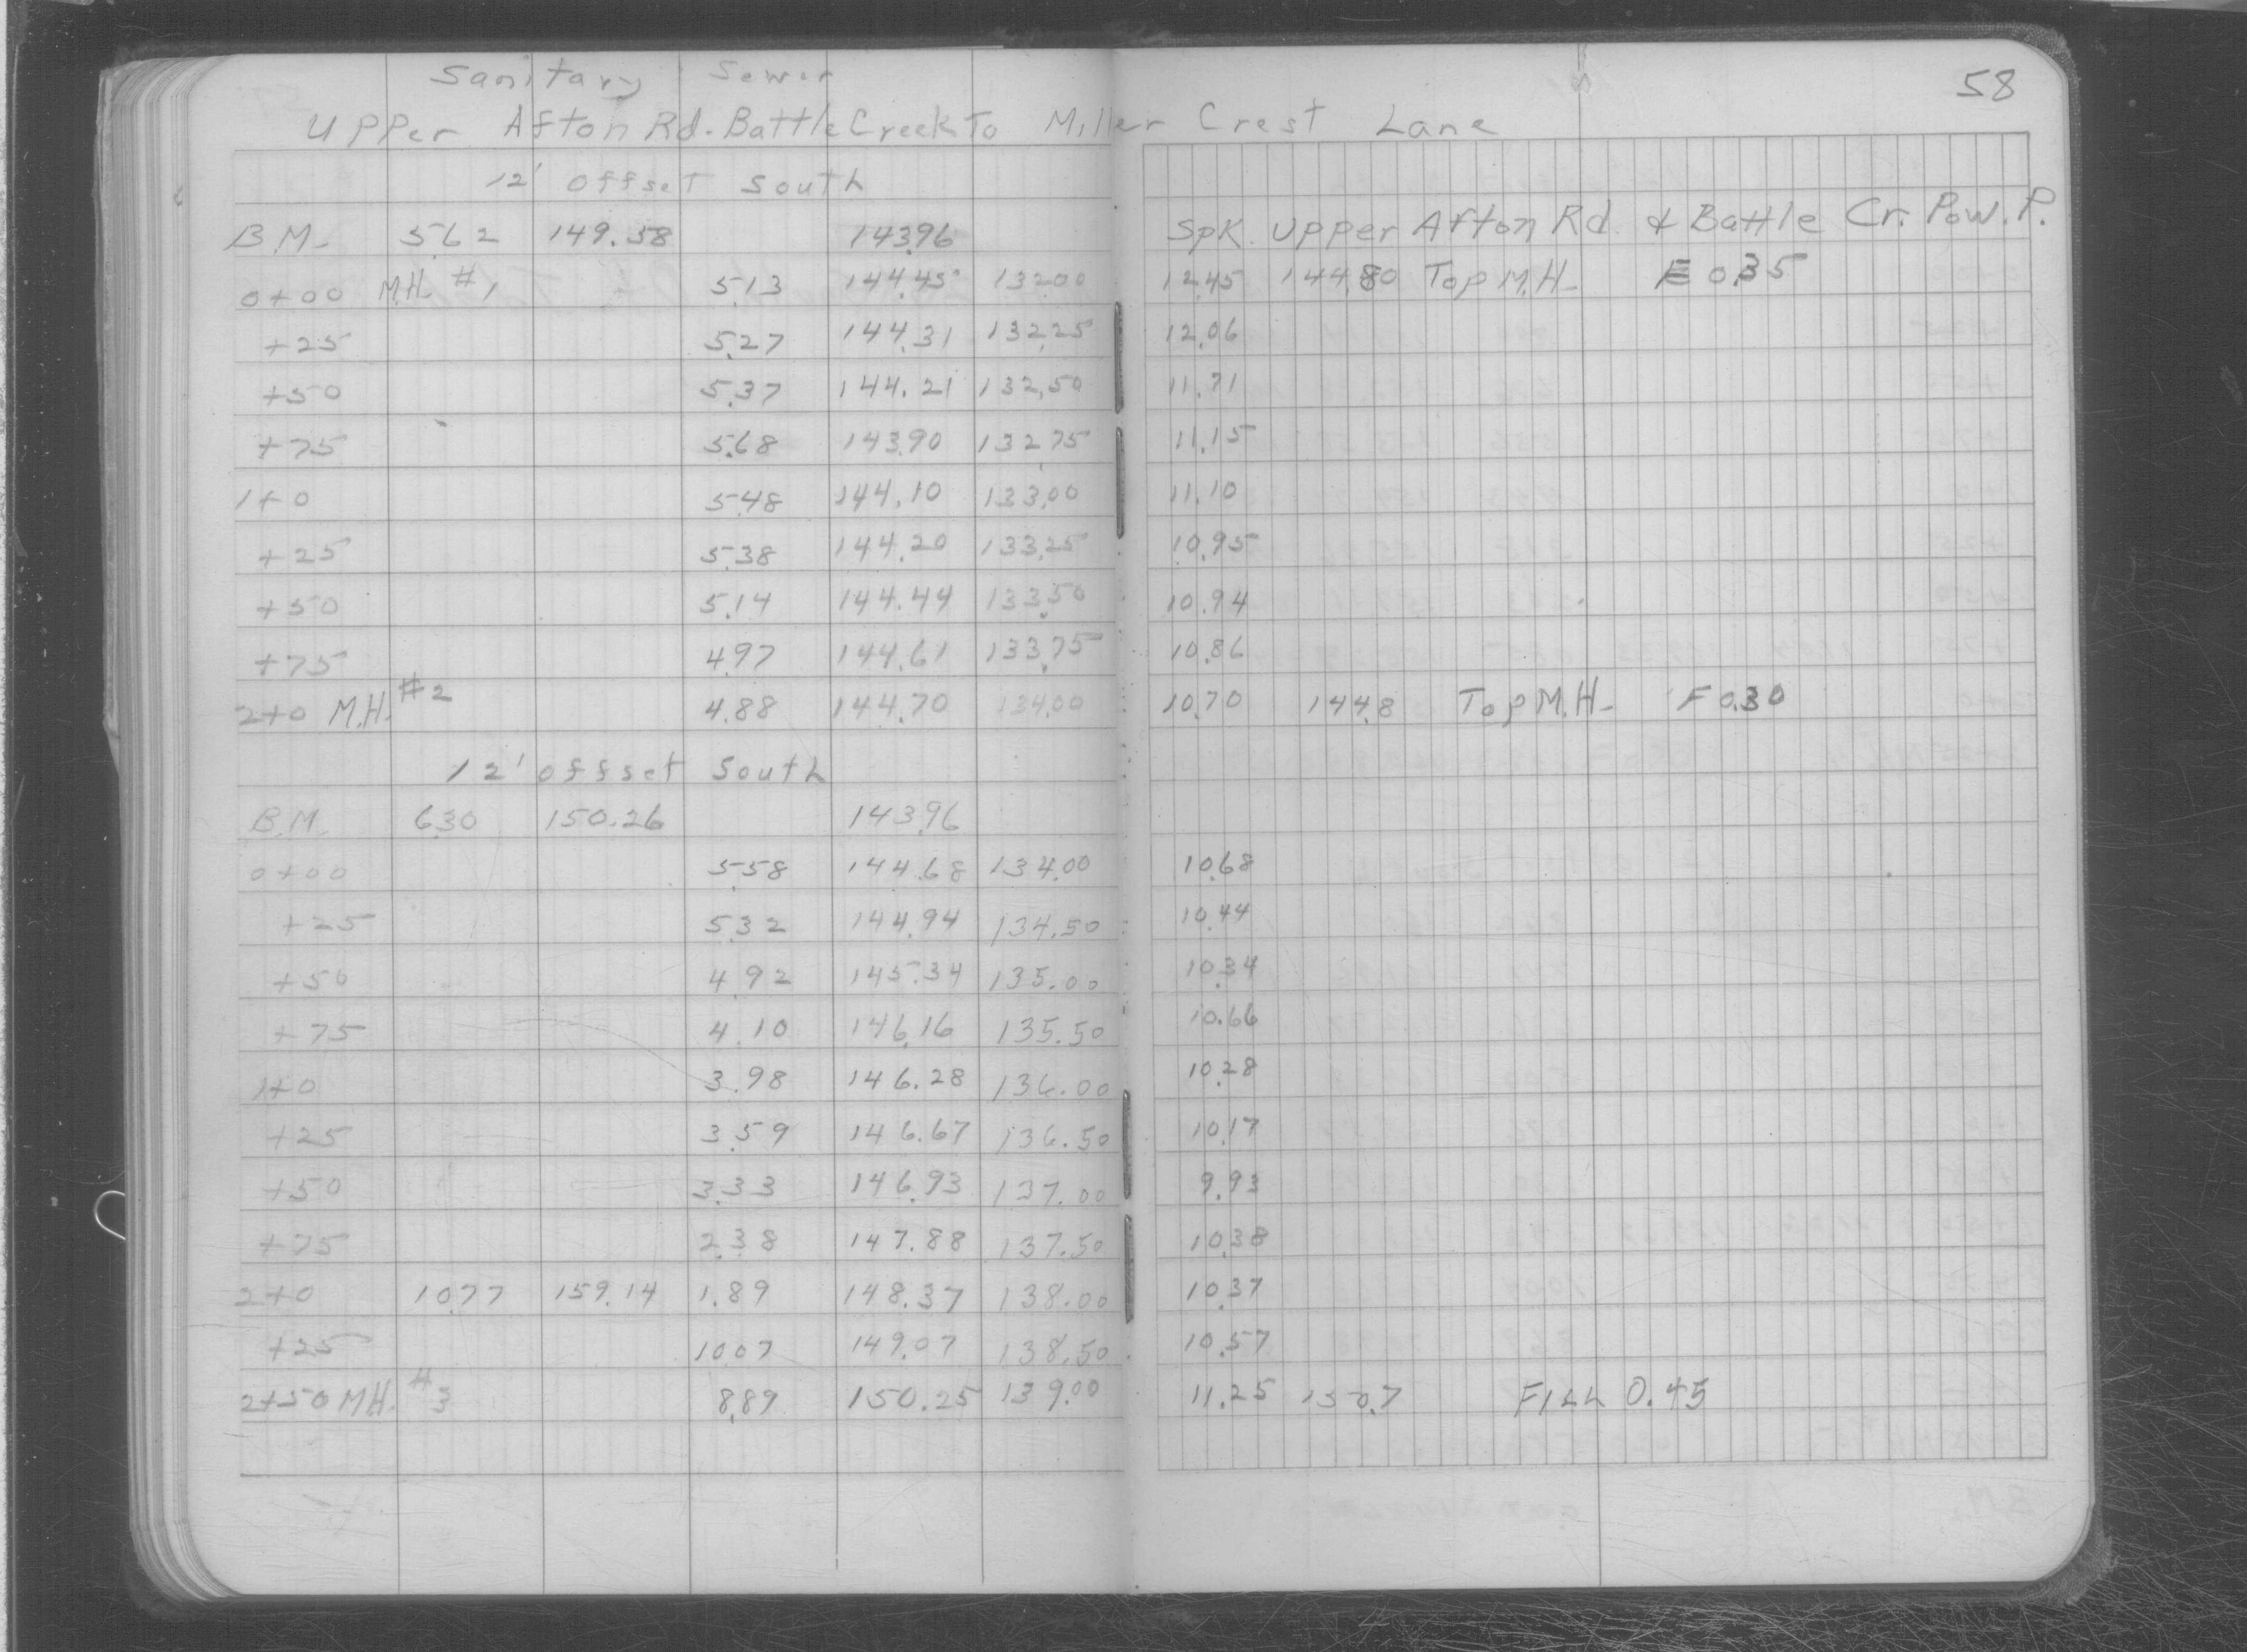 58
Sanitary Sewer
Upper Afton Rd. Battle Creek To Miller Crest Lane
12' offset South
B.M. 5.62 149.58 143.96 Spk. Upper Afton Rd. & Battle Cr. Pow. P.
0+00 M.H. #1 5.13 144.45 132.00 12.45 144.80 Top M.H. F 0.35
+25 5.27 144.31 132.25 12.06
+50 5.37 144.21 132.50 11.71
+75 5.68 143.90 132.75 11.15
1+0 5.48 144.10 133.00 11.10
+25 5.38 144.20 133.25 10.95
+50 5.14 144.44 133.50 10.94
+75 4.97 144.61 133.75 10.86
2+0 M.H. #2 4.88 144.70 134.00 10.70 144.8 Top M.H. F 0.30
12' offset South
B.M. 6.30 150.26 143.96
0+00 5.58 144.68 134.00 10.68
+25 5.32 144.94 134.50 10.44
+50 4.92 145.34 135.00 10.34
+75 4.10 146.16 135.50 10.66
1+0 3.98 146.28 136.00 10.28
+25 3.59 146.67 136.50 10.17
+50 3.33 146.93 137.00 9.93
+75 2.38 147.88 137.50 10.38
2+0 10.77 159.14 1.89 148.37 138.00 10.37
+25 10.07 149.07 138.50 10.57
2+50 M.H. #3 8.89 150.25 139.00 11.25 150.7 FILL 0.45